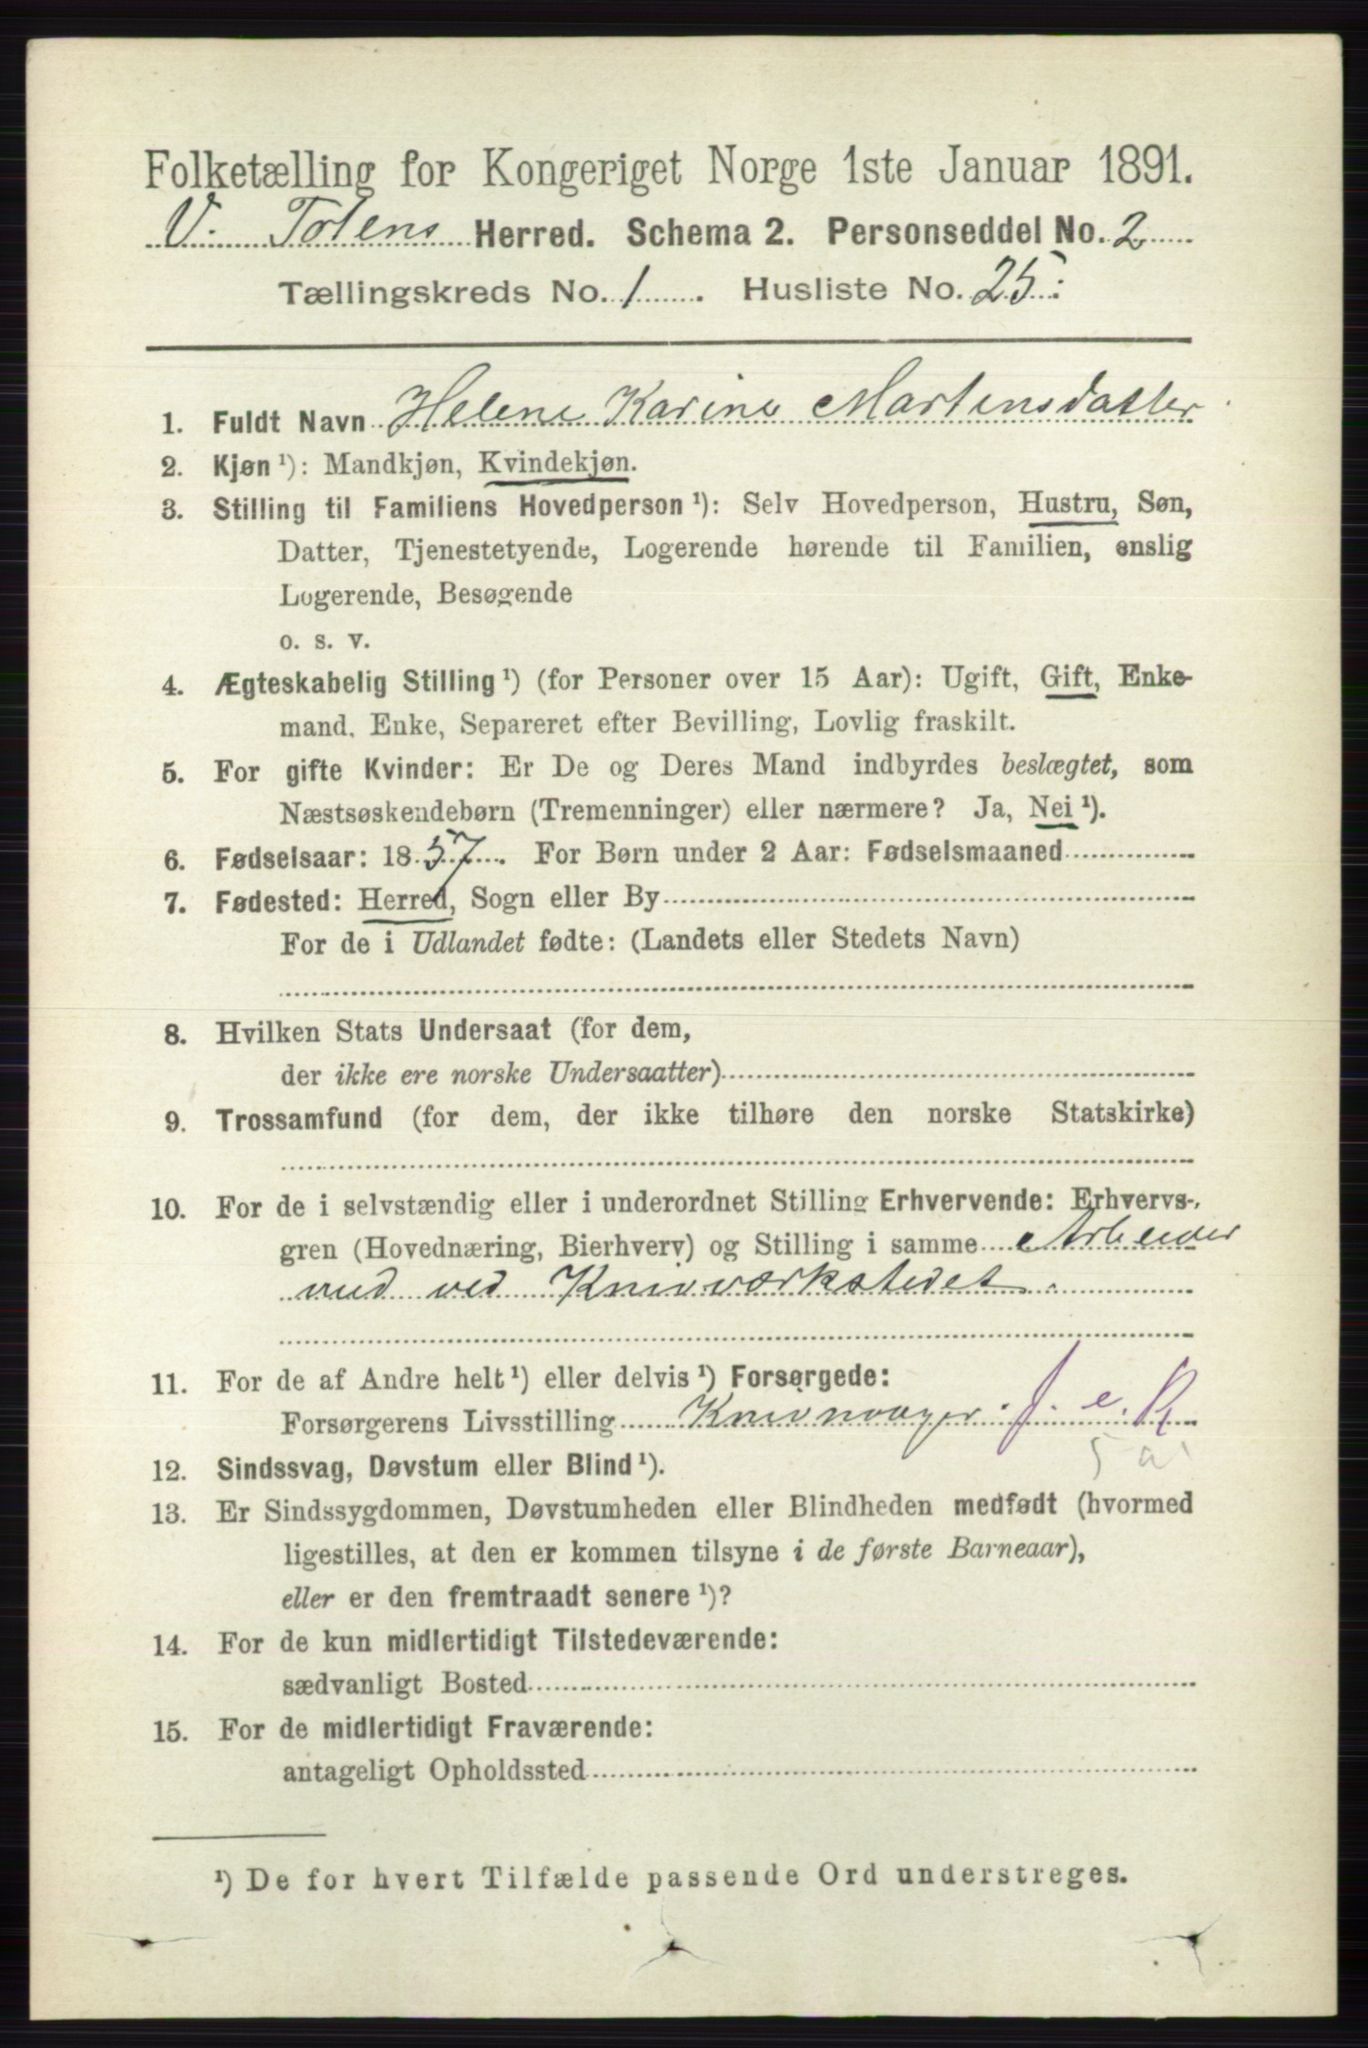 Folketælling for Kongeriget Norge 1ste Januar 1891.
V. Totens Herred. Schema 2. Personseddel No. 2
Tællingskreds No. 1. Husliste No. 25.
1. Fuldt Navn Helene Karine Martinsdatter
2. Kjøn ¹): Mandkjøn, Kvindekjøn.
3. Stilling til Familiens Hovedperson ¹): Selv Hovedperson, Hustru, Søn,
Datter, Tjenestetyende, Logerende hørende til Familien, enslig
Logerende, Besøgende
o. s. v.
4. Ægteskabelig Stilling ¹) (for Personer over 15 Aar): Ugift, Gift, Enke-
mand, Enke, Separeret efter Bevilling, Lovlig fraskilt.
5. For gifte Kvinder: Er De og Deres Mand indbyrdes beslægtet, som
Næstsøskendebørn (Tremenninger) eller nærmere? Ja, Nei ¹).
6. Fødselsaar: 1857. For Børn under 2 Aar: Fødselsmaaned
7. Fødested: Herred, Sogn eller By
For de i Udlandet fødte: (Landets eller Stedets Navn)
8. Hvilken Stats Undersaat (for dem,
der ikke ere norske Undersaatter)
9. Trossamfund (for dem, der ikke tilhøre den norske Statskirke)
10. For de i selvstændig eller i underordnet Stilling Erhvervende: Erhvervs-
gren (Hovednæring, Bierhverv) og Stilling i samme Arbeider
med ved Knivværkstedet.
11. For de af Andre helt ¹) eller delvis ¹) Forsørgede:
Forsørgerens Livsstilling J. e. R
5 a
12. Sindssvag, Døvstum eller Blind ¹).
13. Er Sindssygdommen, Døvstumheden eller Blindheden medfødt (hvormed
ligestilles, at den er kommen tilsyne i de første Barneaar),
eller er den fremtraadt senere ¹)?
14. For de kun midlertidigt Tilstedeværende:
sædvanligt Bosted
15. For de midlertidigt Fraværende:
antageligt Opholdssted
¹) De for hvert Tilfælde passende Ord understreges.